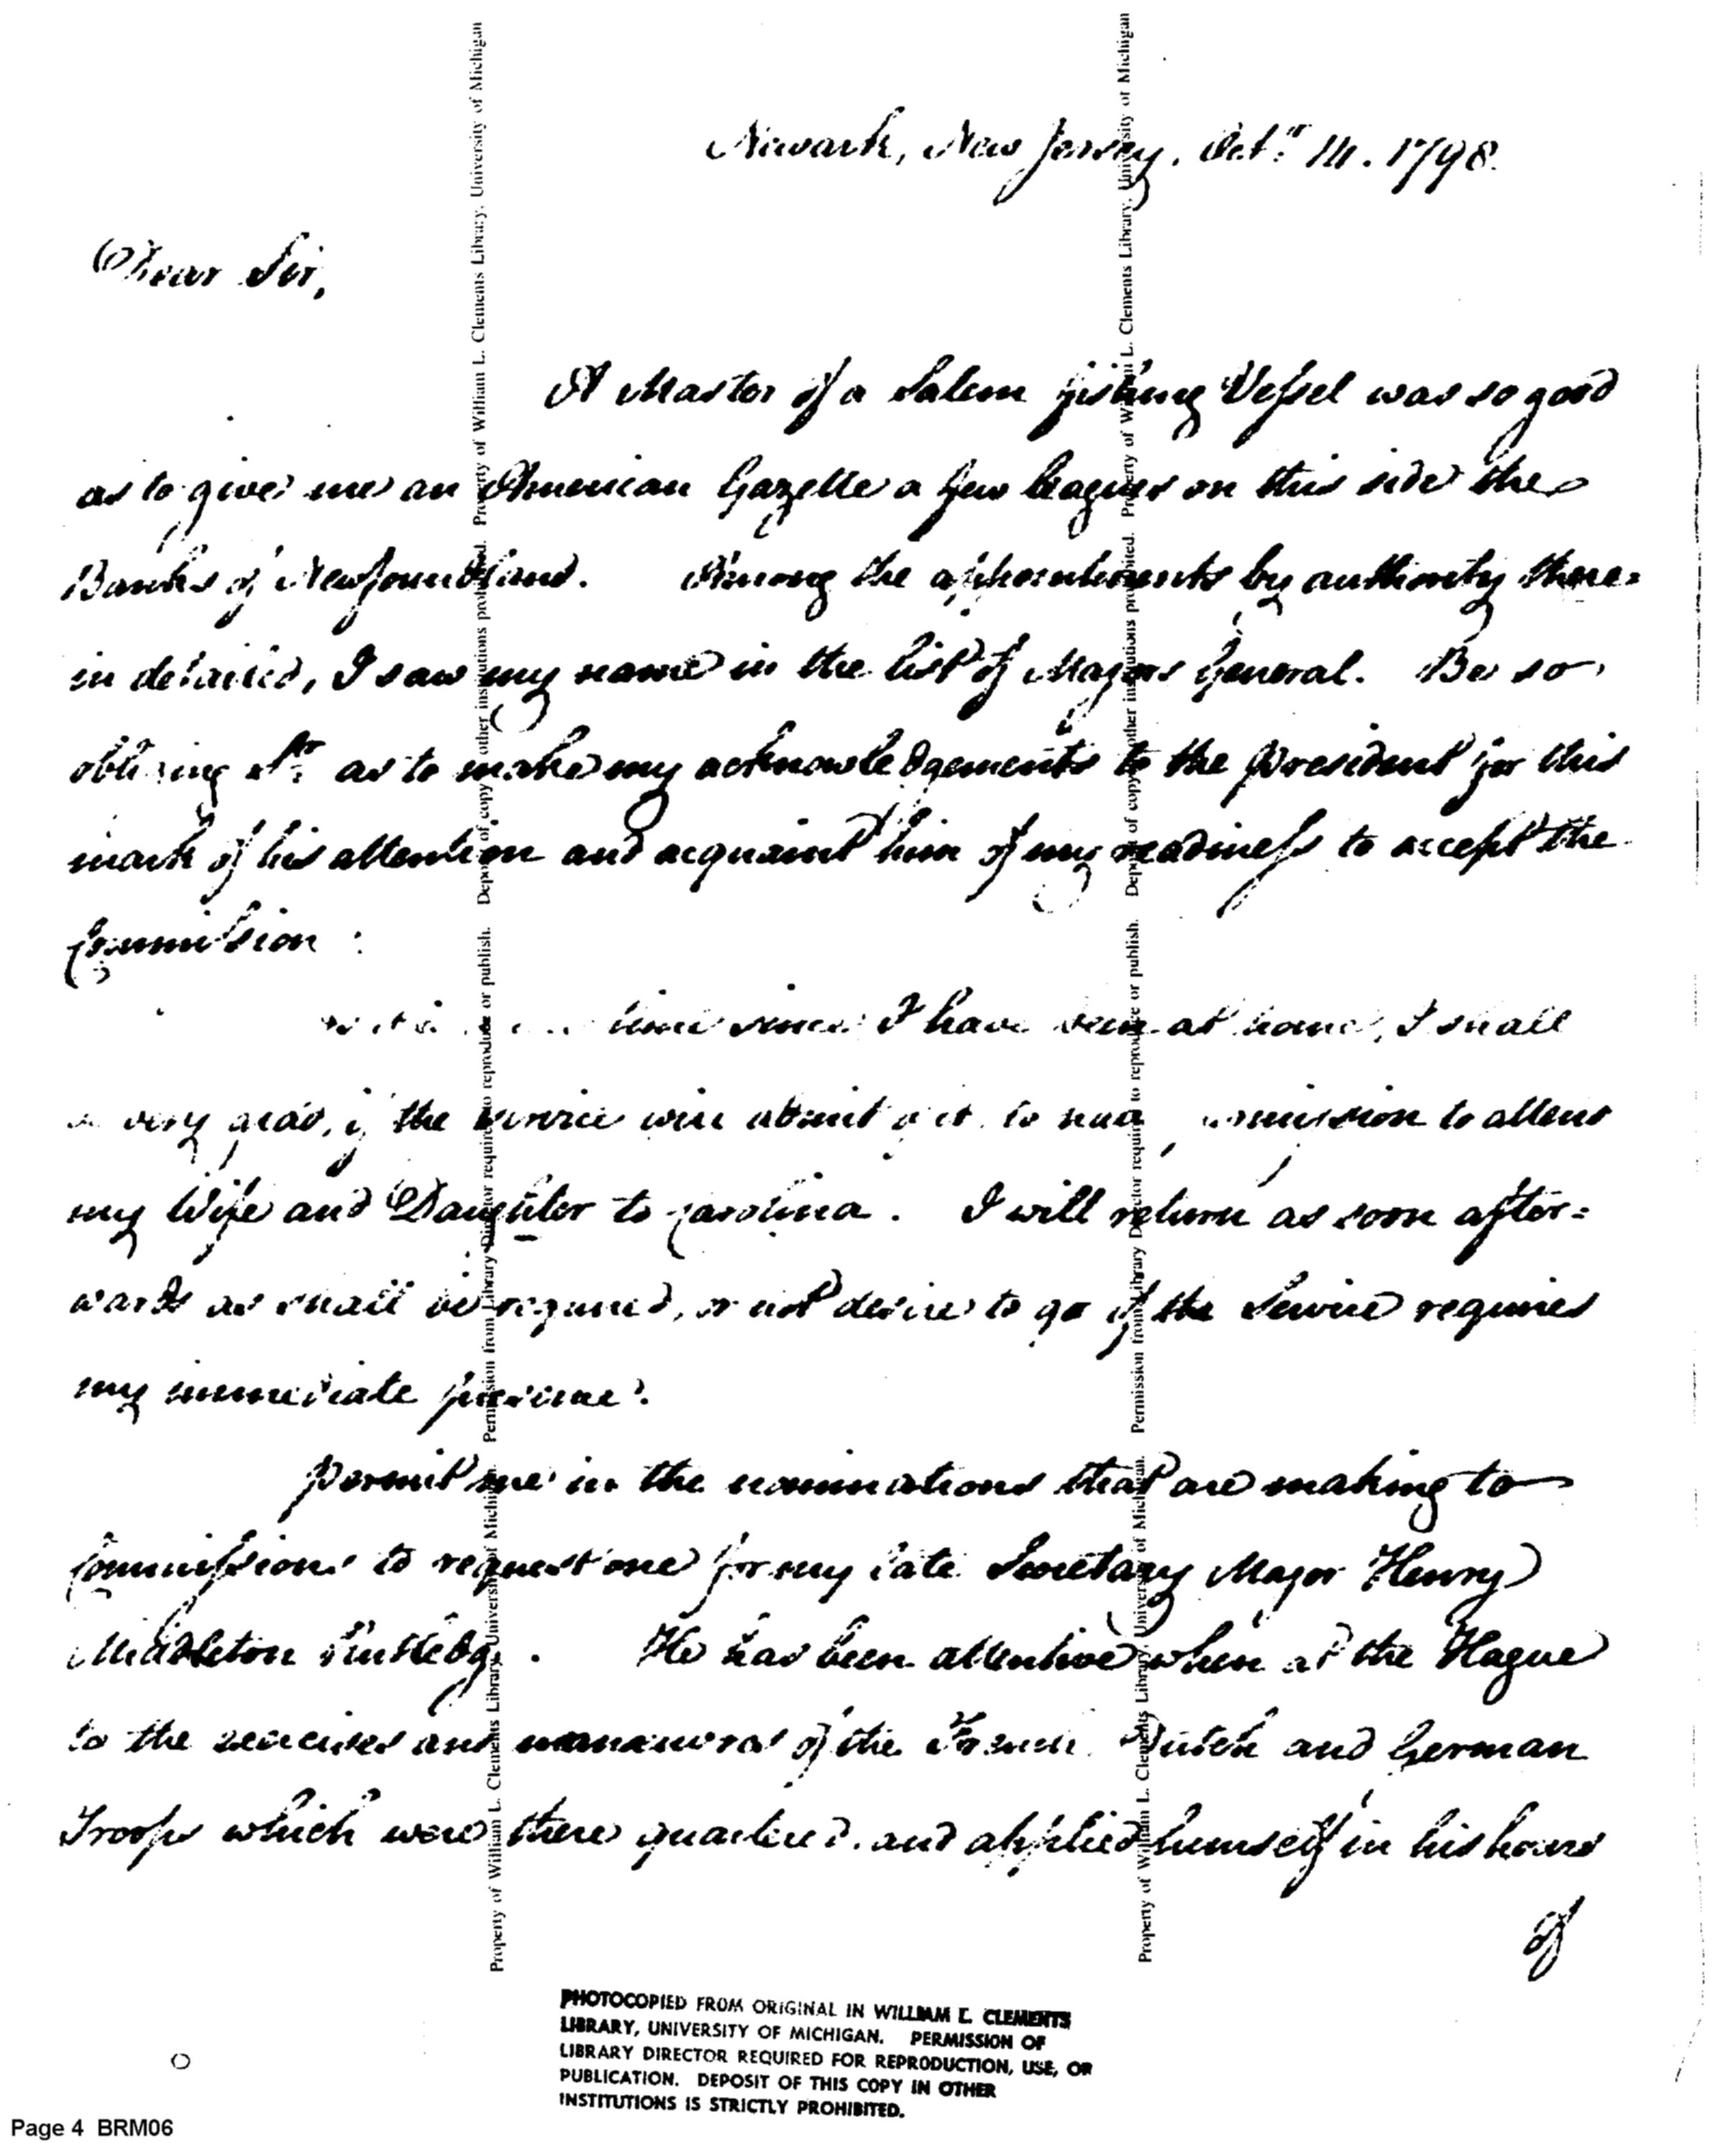 Newark, New Jersey. Octr. 14. 1798.
Dear Sir,
A Master of a Salem fishing Vessel was so good
as to give me an American Gazette a few leagues on this side the
Banks of Newfoundland. Among the appointments by authority there=
in detailed, I saw my name in the list of Majors General. Be so
obliging Sr. as to make my acknowledgements to the President for this
mark of his attention and acquaint him of my readiness to accept the
Commission:
time since I have been at home, I shall
very glad, if the service will admit of it, to to attend
my Wife and Daughter to Carolina. I will return as soon after=
wards as shall be required, or not desire to go if the Service requires
my immediate presence.
Permit me in the nominations that are making to
Commissions to request one for my late Secretary Major Henry
Middleton Rutledge. He has been attentive when at the Hague
to the exercises and manœuvres of the French Dutch and German
Troops which were there quartered, and applied himself in his hours
of
PHOTOCOPIED FROM ORIGINAL IN WILLIAM L. CLEMENTS
LIBRARY, UNIVERSITY OF MICHIGAN. PERMISSION OF
LIBRARY DIRECTOR REQUIRED FOR REPRODUCTION, USE, OR
PUBLICATION. DEPOSIT OF THIS COPY IN OTHER
INSTITUTIONS IS STRICTLY PROHIBITED.
Page 4 BRM06
Property of William L. Clements Library, University of Michigan. Permission from Library Director required to reproduce or publish. Deposit of copy in other institutions prohibited. Property of William L. Clements Library, University of Michigan
Property of William L. Clements Library, University of Michigan. Permission from Library Director required to reproduce or publish. Deposit of copy in other institutions prohibited. Property of William L. Clements Library, University of Michigan